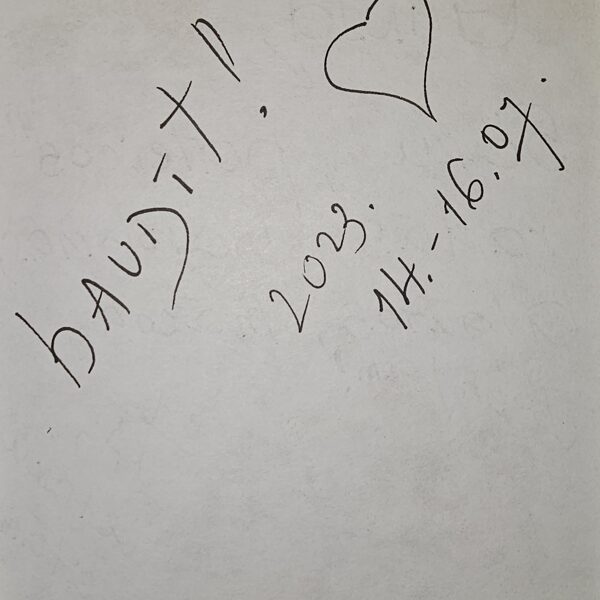 bAUDīT!
2023.
14.-16.07.